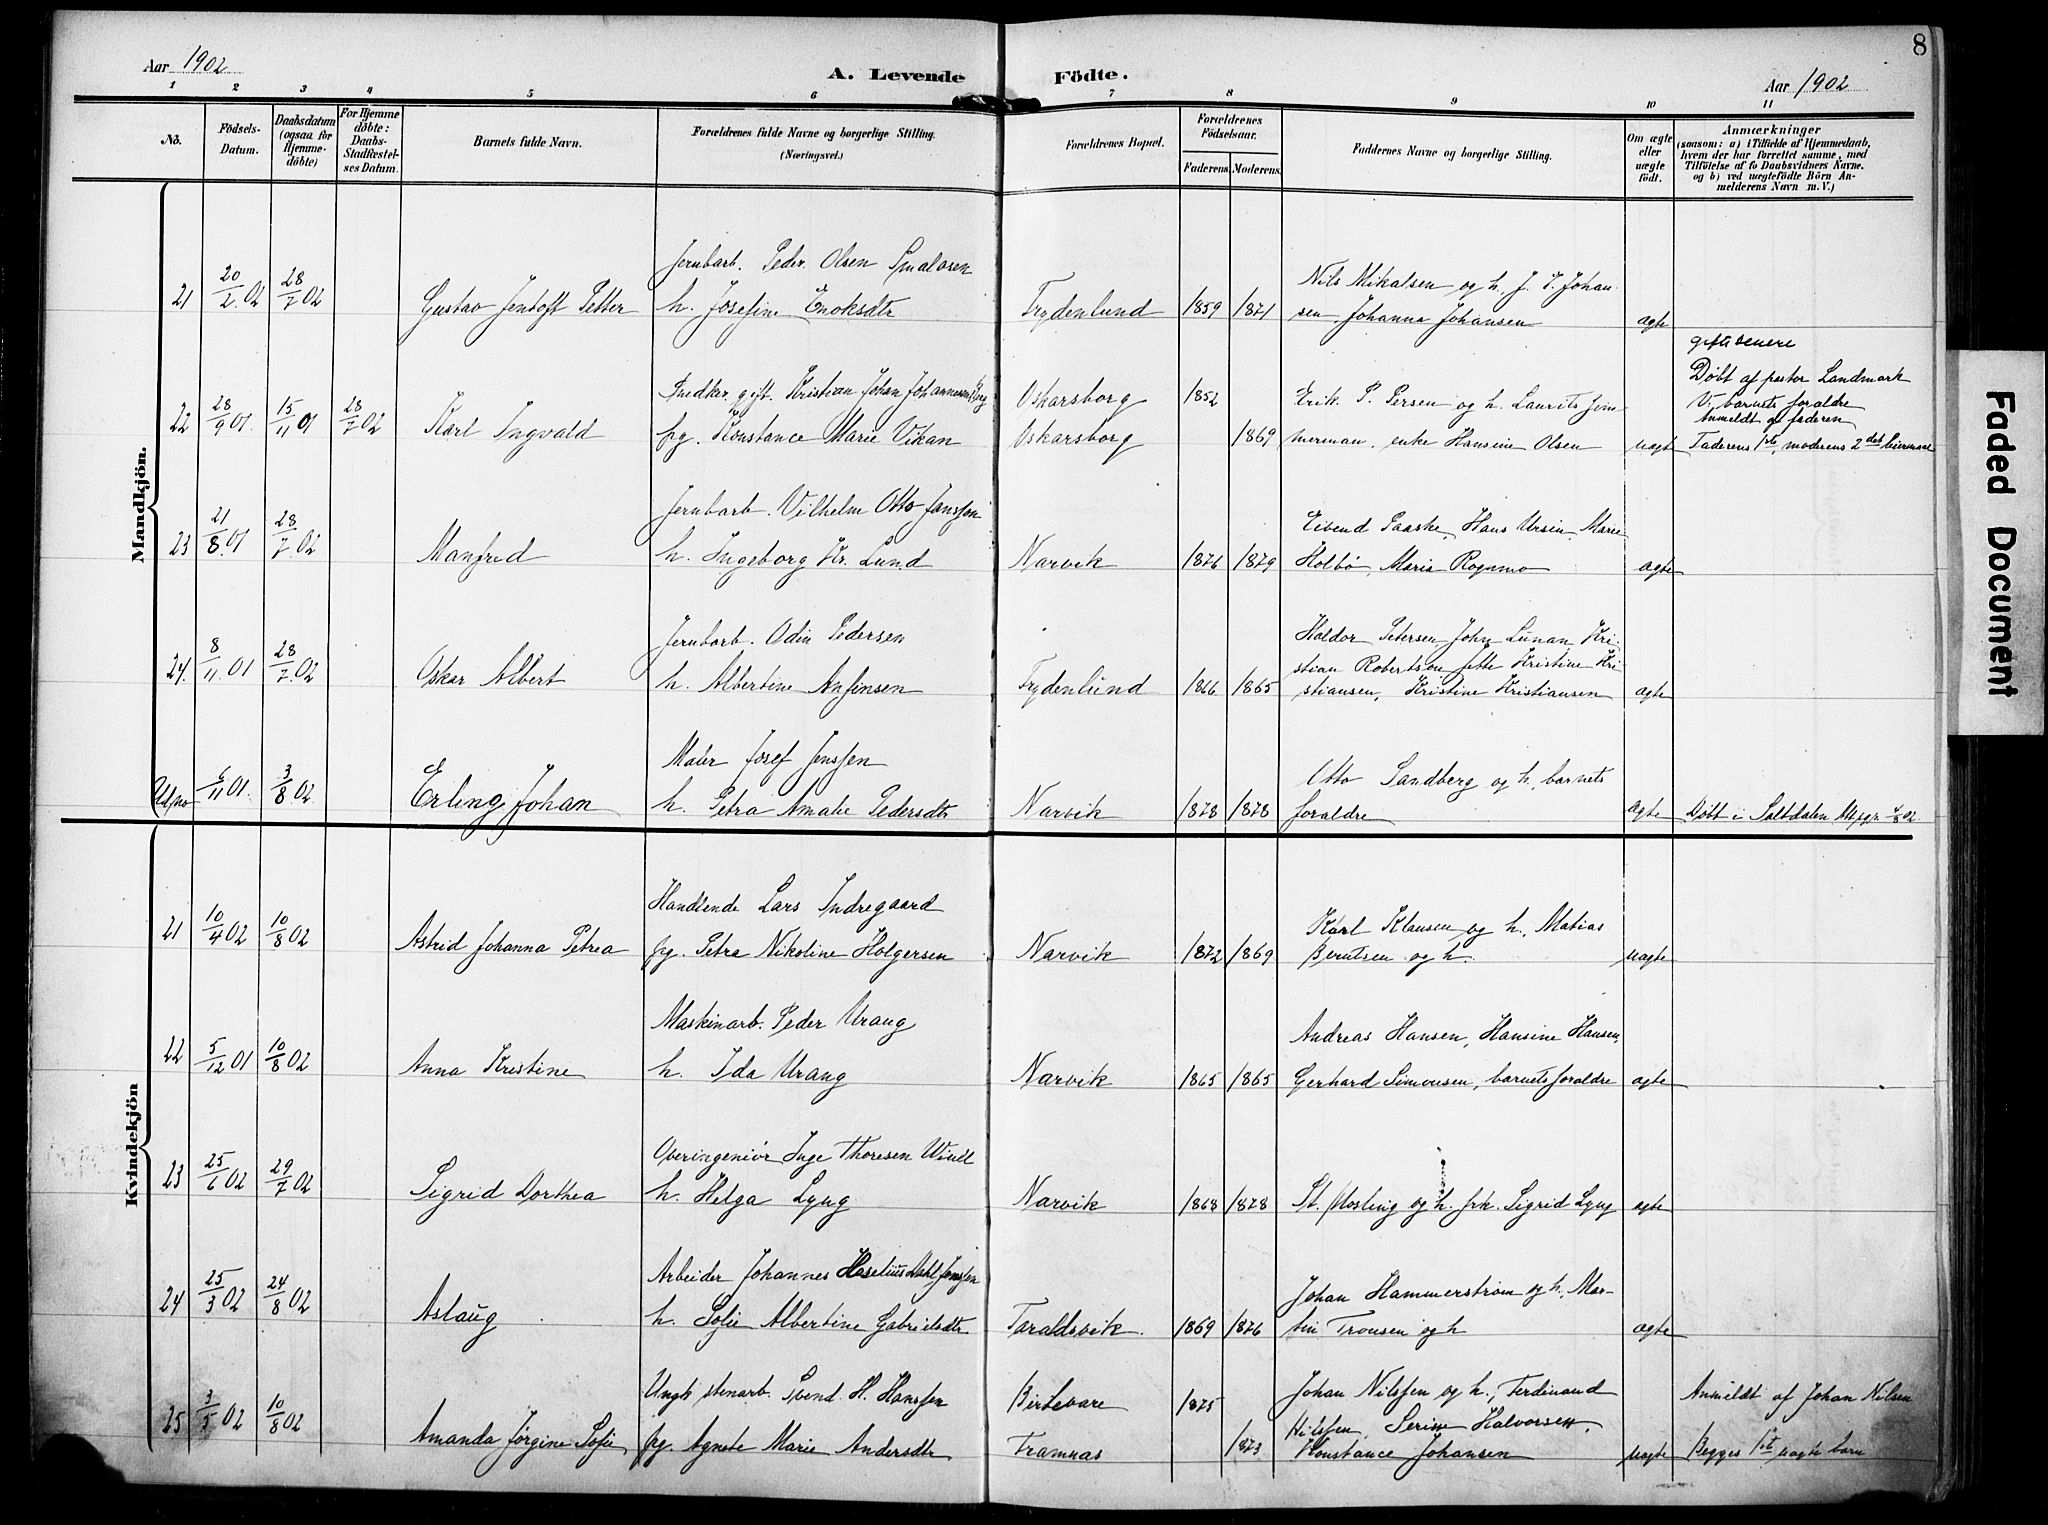 8
Aar 1902
A. Levende Födte.
Aar 1902
1 2 3 4 5 6 7 8 9 10 11
No.
Födsels-Datum.
Daabsdatum (ogsaa for Hjemme-döbte)
For Hjemme döbte: Daabs-Stadfæstel-ses Datum.
Barnets fulde Navn.
Forældrenes fulde Navne og borgerlige Stilling.
(Næringsvei.)
Forældrenes Bopæl.
Forældrenes Födselsaar.
Faderens Moderens
Faddernes Navne og borgerlige Stilling.
Om ægte eller uægte födt.
Anmærkninger
(saasom: a) i Tilfælde af Hjemmedaab,
hvem der har forrettet samme, med
Tilföielse af to Daabsvidners Navne.
og b) ved uægtefödte Börn An-
melderens Navn m. V.)
Mandkjön.
Jernbarb. Peder Olsen Smalosen
Nils Mikalsen og h. J. P. Johan
21 20/2.02 28/7 02 Gustav Jentoft Petter h. Josefine Enoksdtr Frydenlund 1859 1871 sen, Johanna Johansen ægte
gift senere
Døbt af pastor Landmark
V. barnets forældre
Anmeldt af faderen
Snedker gift. Kristian Johan Johannessen Berg Oskarsborg 1852 Erik P. Persen og h. Laurits Jem
22 28/9 01 15/11 01 28/7 02 Karl Ingvald pg. Konstance Marie Vikan Oskarsborg 1869 merman, enke Hansine Olsen uægte Faderens 1ste, moderens 2det leiermaal
Jernbarb. Vilhelm Otto Janssen
Eivend Paaske, Hans Ursin, Marie
23 21/8.01 28/7.02 Manfred h. Ingeborg Kr. Lund Narvik 1876 1879 Holbø, Maria Rognmo ægte
Jernbarb. Odin Pedersen
Haldor Petersen, John Lunan Kri-
stian Robertson, Jette Kristine Kri-
24. 8/11.01 28/7.02 Oskar Albert h. Albertine Anfinsen Frydenlund 1866 1865 stiansen, Kristine Kristiansen ægte
Maler Josef Jenssen
Otto Sandberg og h., barnets
6/11 01. 3/8.02 Erling Johan h. Petra Amalie Pedersdtr Narvik 1878 1878 forældre ægte Døbt i Saltdalen
Kvindekjön
Handlende Lars Indregaard
Karl Klausen og h., Matias
21 10/4 02 10/8 02 Astrid Johanna Petrea pg. Petra Nikoline Holgersen Narvik 1872 1869 Berntsen og h. uægte
Maskinarb. Peder Urang
Andreas Hansen, Hansine Hansen,
22 5/12 01 10/8 02 Anna Kristine h. Ida Urang Narvik 1865 1865 Gerhard Simonsen, barnets forældre ægte
Overingeniør Inge Thoresen Wiull
23 25/6 02 29/7 02 Sigrid Dorthea h. Helga Lyng Narvik 1868 1878 St. Mosling og h. frk. Sigrid Lyng ægte
Arbeider Johannes Haselius Dahl Jenssen
Johan Hammerstrøm og h., Mar-
24 25/3 02 24/8 02 Aslaug h. Sofie Albertine Gabrielsdtr Taraldsvik. 1869 1876 tin Tronsen og h ægte
Ungk stenarb. Svend. H. Hanssen Birtavare 1875 Johan Nilssen og h., Ferdinand Anmeldt af Johan Nilsen
Nilssen, Serine Halvorsen,
25 3/5 02 10/8 02 Amanda Jørgine Sofie pg. Agnete Marie Andersdtr Framnæs 1873 Konstance Johansen uægte Begges 1ste uægte barn
Faded Document